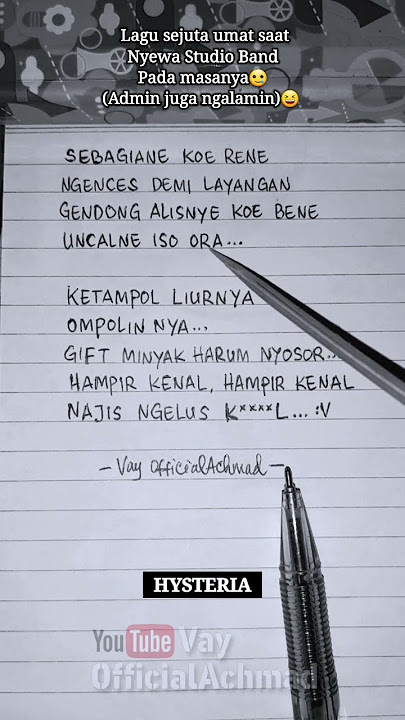 Lagu sejuta umat saat
Nyewa Studio Band
Pada masanya🙂
(Admin juga ngalamin)😆
SEBAGIANE KOE RENE
NGENCES DEMI LAYANGAN
GENDONG ALISNYE KOE BENE
UNCALNE ISO ORA...
KETAMPOL LIURNYA
OMPOLIN NYA...
GIFT MINYAK HARUM NYOSOR...
HAMPIR KENAL, HAMPIR KENAL
NAJIS NGELUS K****L... :V
- Vay OfficialAchmad -
HYSTERIA
YouTube Vay
OfficialAchmad